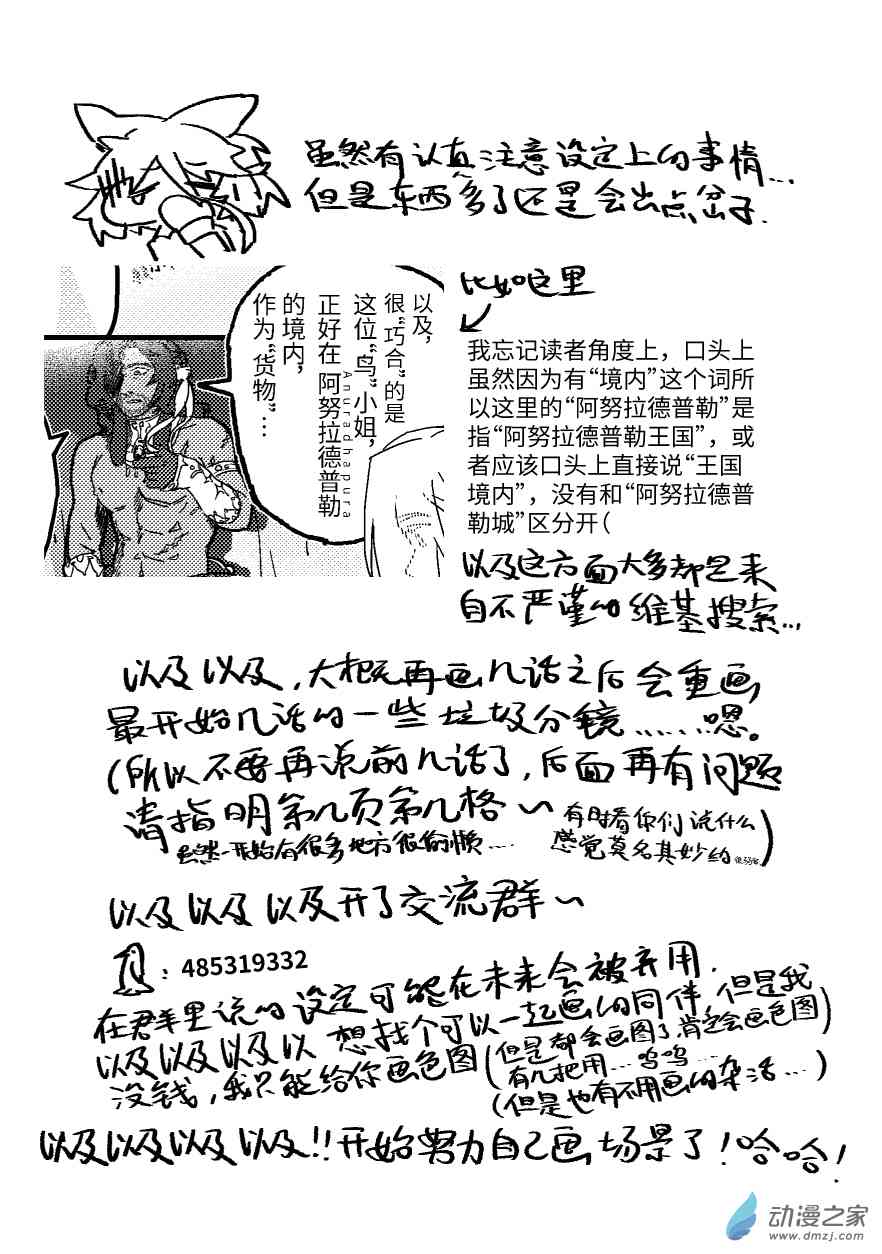 虽然有认真注意设定上的事情…
但是东西多了还是会出点岔子.
比如这里
以及,
很“巧合”的是
这位“鸟”小姐,
正好在 阿努拉德普勒
Anuradhapura
的境内,
作为“货物”…
我忘记读者角度上，口头上
虽然因为有“境内”这个词所
以这里的“阿努拉德普勒”是
指“阿努拉德普勒王国”，或
者应该口头上直接说“王国
境内”，没有和“阿努拉德普
勒城”区分开(
以及这方面大多都是来
自不严谨的维基搜索...
以及以及,大概再画几话之后会重画
最开始几话的一些垃圾分镜……嗯。
(所以不要再说前几话了,后面再有问题
请指明第几页第几格~
虽然一开始有很多地方很偷懒……
有时看你们说什么
感觉莫名其妙的...
)
以及以及以及开了交流群~
: 485319332
在君羊里说的设定可能在未来会被弃用.
以及以及以及以 想找个可以一起画的同伴,但是我
没钱,我只能给你画色图(但是都会画图了,肯定会画色图)
有几把用...呜呜...
(但是也有不用画的杂活...)
以及以及以及以及!!开始努力自己画场景了!哈哈!
动漫之家
www.dmzj.com